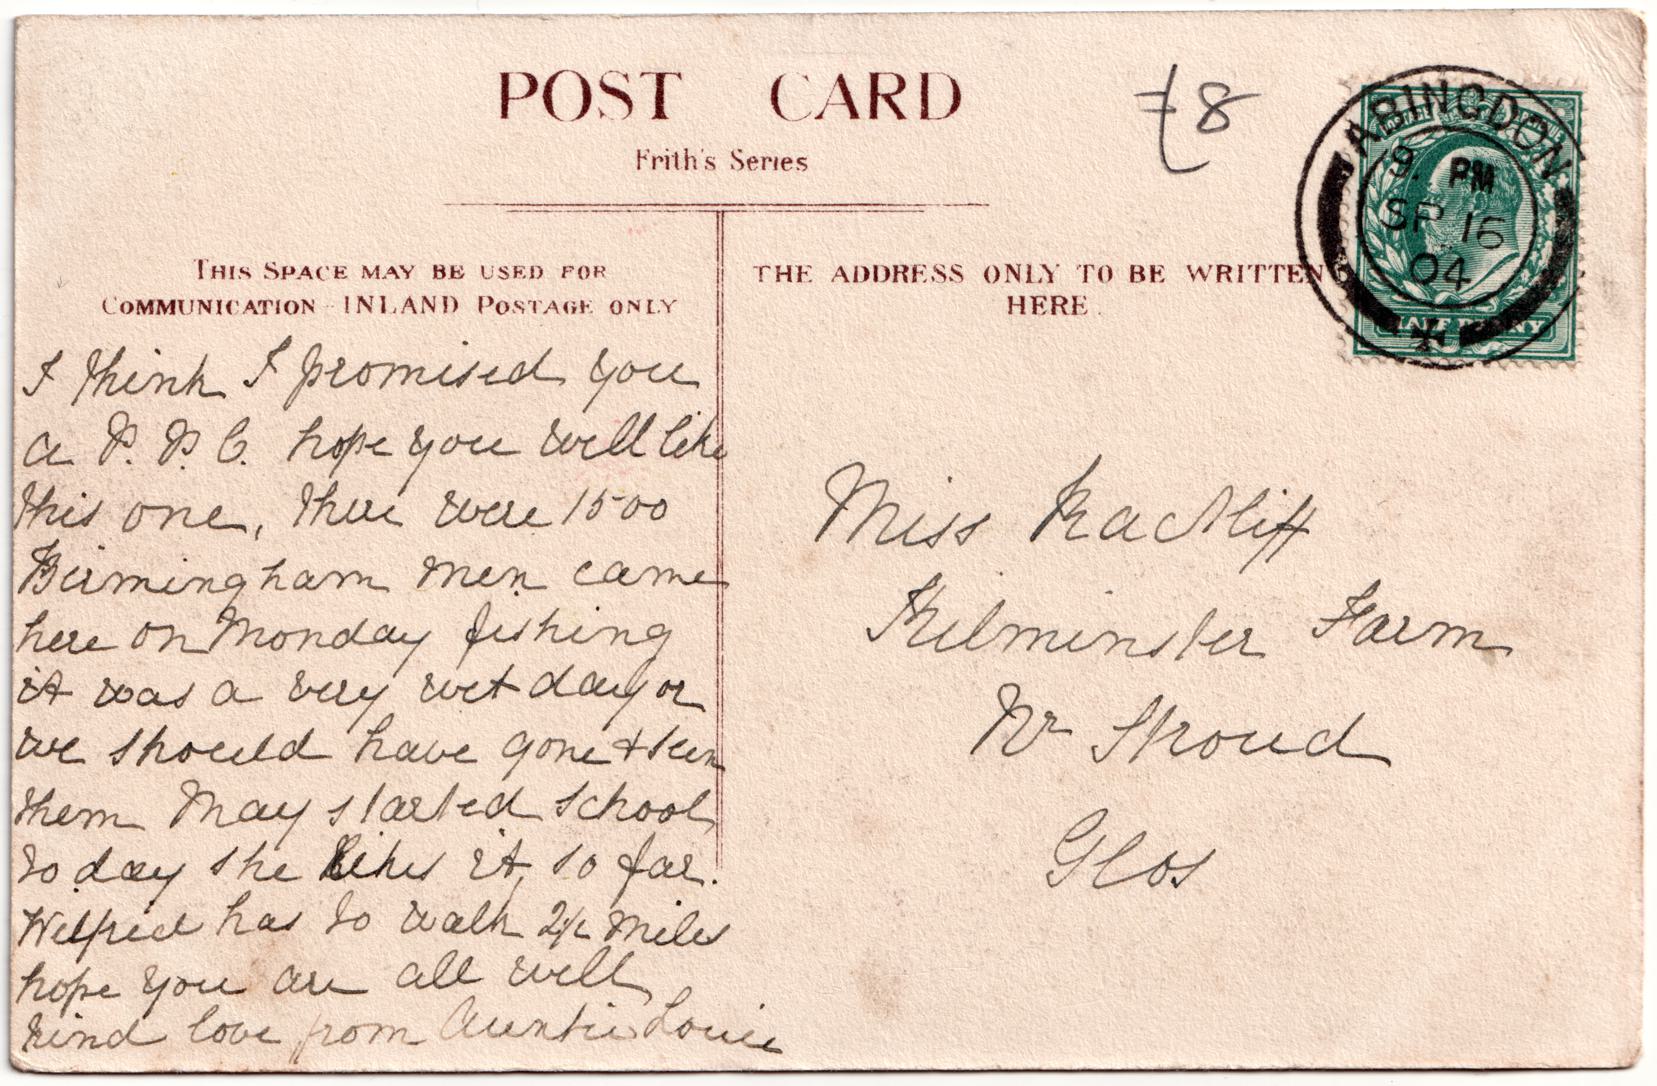 POST CARD
Frith's Series
£8
ABINGDON
9. PM
SP 16
04
HALF PENNY
THIS SPACE MAY BE USED FOR
COMMUNICATION - INLAND POSTAGE ONLY
THE ADDRESS ONLY TO BE WRITTEN
HERE.
I think I promised you
a P. P. C. hope you will like
this one, there were 1500
Birmingham men came
here on Monday fishing
it was a very wet day or
we should have gone + seen
them May started school
to day she likes it, so far.
Wilfried has to walk 2½ miles
hope you are all well
kind love from Auntie Louie
Miss Racliff
Kilminster Farm
Nr Stroud
Glos